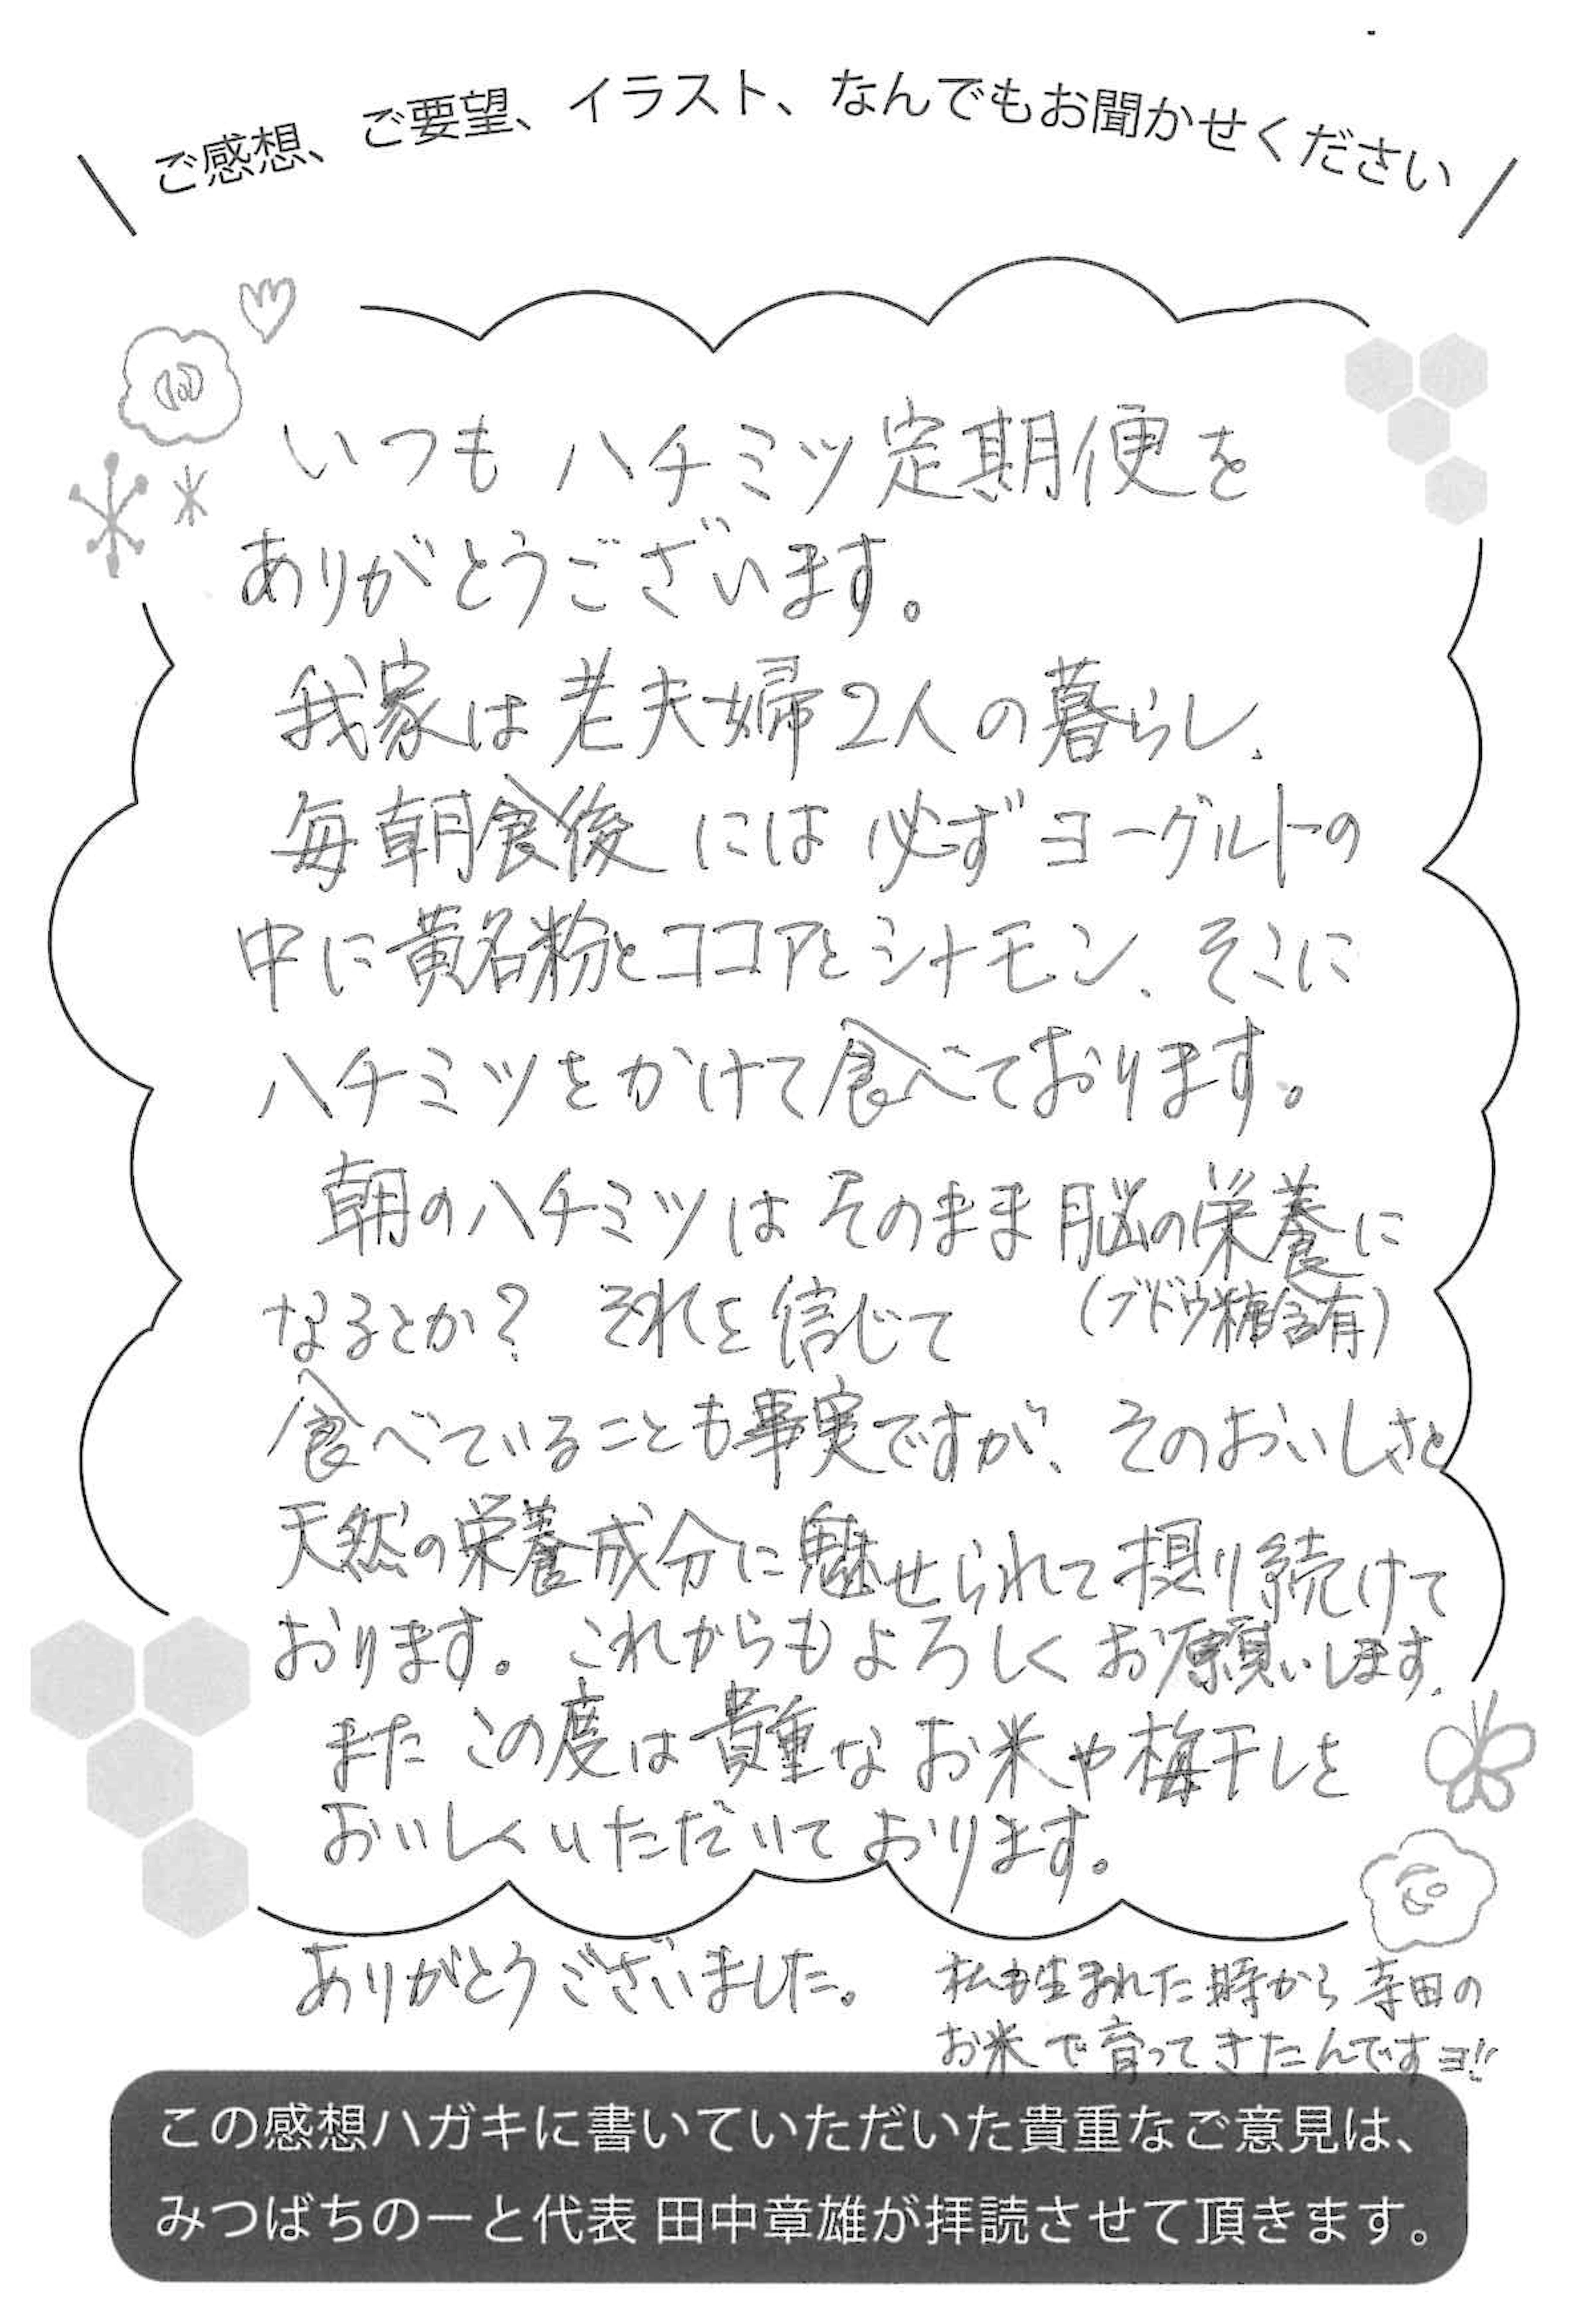 ご感想、ご要望、イラスト、なんでもお聞かせください
いつもハチミツ定期便を
ありがとうございます。
我家は老夫婦2人の暮らし、
毎朝食後には必ずヨーグルトの
中に黄名粉とココアとシナモン、そこに
ハチミツをかけて食べております。
朝のハチミツはそのまま脳の栄養に
なるとか? それを信じて (ブドウ糖含有)
食べていることも事実ですが、そのおいしさと
天然の栄養成分に魅せられて摂り続けて
おります。これからもよろしくお願いします。
またこの度は貴重なお米や梅干しを
おいしくいただいております。
ありがとうございました。
私も生まれた時から寺田の
お米で育ってきたんですヨ!!
この感想ハガキに書いていただいた貴重なご意見は、
みつばちのーと代表 田中章雄が拝読させて頂きます。